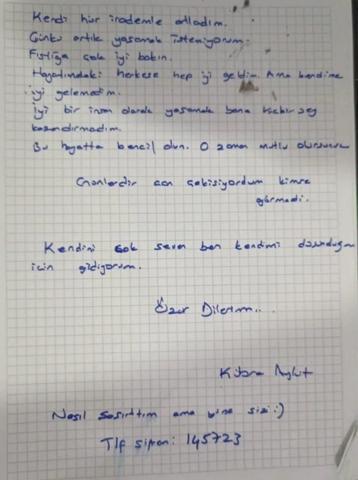 Kendi hür irademle atladım.
Çünkü artık yaşamak istemiyorum.
Fıstığa çok iyi bakın.
Hayatımdaki herkese hep iyi geldim. Ama kendime
iyi gelemedim.
İyi bir insan olarak yaşamak bana hiçbir şey
kazandırmadım.
Bu hayatta bencil olun. O zaman mutlu olursunuz
Günlerdir can çekişiyordum kimse
görmedi.
Kendimi çok seven ben kendimi düşündüğüm
için gidiyorum.
Özür Dilerim..
Kübra Aykut
Nasıl şaşırttım ama yine sizi :)
Tlf şifrem: 145723